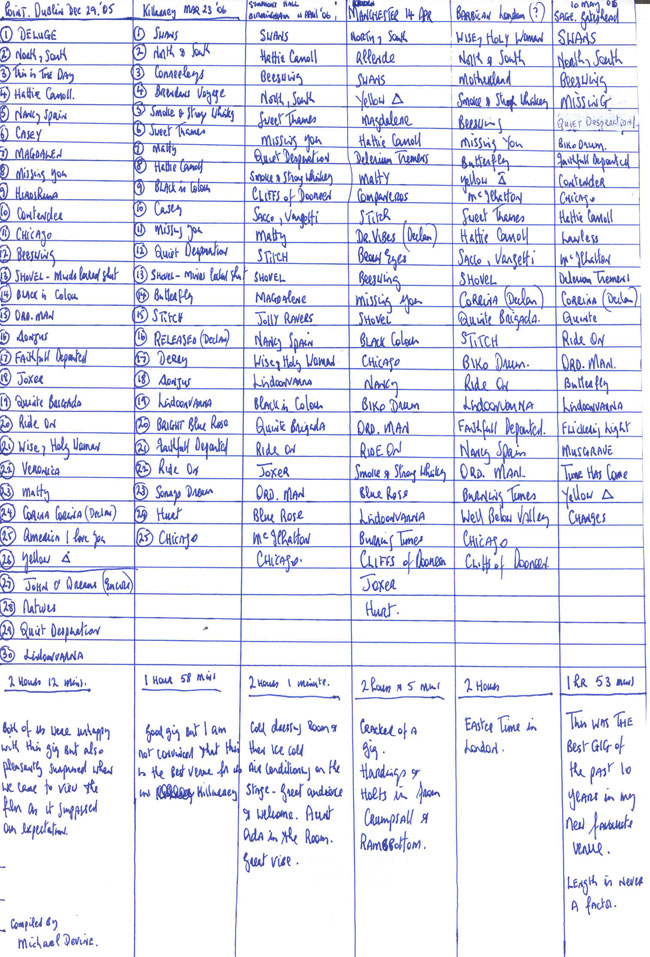 Point. Dublin Dec 29, '05
① DELUGE
② North, South
③ This is The DAY
④ Hattie Carroll.
⑤ NANCY Spain
⑥ CASEY
⑦ MAGDALEN
⑧ Missing you
⑨ HIROSHIMA
⑩ Contender
⑪ CHICAGO
⑫ Beeswing
⑬ SHOVEL -
⑭ Black is Colour
⑮ ORD. MAN
⑯ Aongus
⑰ FAithfull Departed
⑱ Joxer
⑲ Quinte Brigada
⑳ Ride On
㉑ Wise, Holy Woman
㉒ VERONICA
㉓ Matty
㉔ CORINA CORRINA (Declan)
㉕ America I love you
㉖ Yellow Δ
㉗ JOHN O' DREAMS (Encore)
㉘ Natives
㉙ Quiet Desperation
㉚ Lisdoonvarna
2 Hours 12 mins.
Both of us were unhappy
with this gig but also
pleasantly surprised when
we came to view the
film as it surpassed
our expectation
Compiled By
Michael Devine.
Killarney MAR 23 '06
① SWANS
② North & South
③ Connollys
④ Brendans Voyage
⑤ Smoke & Strong Whisky
⑥ Sweet Thames
⑦ Matty
⑧ Hattie Carroll
⑨ BLACK is Colour
⑩ Casey
⑪ Missing you
⑫ Quiet Desperation
⑬ SHOVEL -
⑭ Butterfly
⑮ STITCH
⑯ RELEASED (Declan)
⑰ DERRY
⑱ Aongus
⑲ Lisdoonvarna
⑳ BRIGHT Blue Rose
㉑ Faithfull Departed
㉒ Ride On
㉓ Songo Dream
㉔ Hurt
㉕ CHICAGO
1 Hour 58 mins
Good gig But I am
not convinced that this
is the best venue for us
in Killarney
SYMPHONY HALL
BIRMINGHAM 11 APRIL '06
SWANS
Hattie Carroll
Beeswing
North, South
Sweet Thames
Missing you
Quiet Desperation
Smoke & Strong Whiskey
CLIFFS of Dooneen
Sacco, Vanzetti
Matty
STITCH
SHOVEL
MAGDALENE
JOLLY RAVERS
NANCY Spain
Wise, Holy Woman
Lisdoonvarna
Black is Colour
Quinte Brigada
Ride On
JOXER
ORD. MAN
Blue Rose
McIlhatton
CHICAGO.
2 Hours 1 minute.
Cold dressing Room &
then ice cold
Air Conditioning on the
Stage - Great audience
& welcome. Aunt
Ada in the Room.
Great vibe.
MANCHESTER 14 APR
NORTH, South
Allende
SWANS
Yellow Δ
Magdalene
Hattie Carroll
Delerium Tremens
MATTY
Companeros
STITCH
DR. VIBES (Declan)
Brown Eyes
Beeswing
Missing you
SHOVEL
BLACK Colour
CHICAGO
NANCY
BIKO DRUM
ORD. MAN
RIDE ON
Smoke & Strong Whisky
Blue Rose
Lisdoonvarna
Burning Times
CLIFFS of Dooneen
Joxer
Hurt.
2 hours & 5 mins
Cracked of a
gig.
Hardings &
Holts in from
Crumpsall &
RAMSBOTTOM.
Barbican London (?)
WISE, HOLY WOMAN
North & South
Motherland
Smoke & Strong Whiskey
Beeswing
Missing You
Butterfly
Yellow Δ
McIlhatton
Sweet Thames
Hattie Carroll
Sacco, Vanzetti
SHOVEL
CORRINA (Declan)
Quinte Brigada.
STITCH
BIKO DRUM.
Ride On
LISDOONVARNA
FAITHFULL Departed.
Nancy Spain
ORD. MAN.
Burning Times
Well Below Valley
CHICAGO
Cliffs of Dooneen
2 Hours
EASTER Time in
London.
10 MAY '06
SAGE. Gateshead
SWANS
North, South
Beeswing
MISSING
Quiet Desperation
BIKO DRUM.
Faithfull Departed
Contender
Chicago
Hattie Carroll
Lawless
McIlhatton
Delerium Tremens
CORRINA (Declan)
Quinte
Ride On
ORD. MAN.
Butterfly
LISDOONVARNA
Flickering Light
MUSGRAVE
Time Has Come
Yellow Δ
CHANGES
1 HR 53 mins
This was THE
Best GIG of
the past 10
years in my
new favourite
venue.
Length is NEVER
A factor.